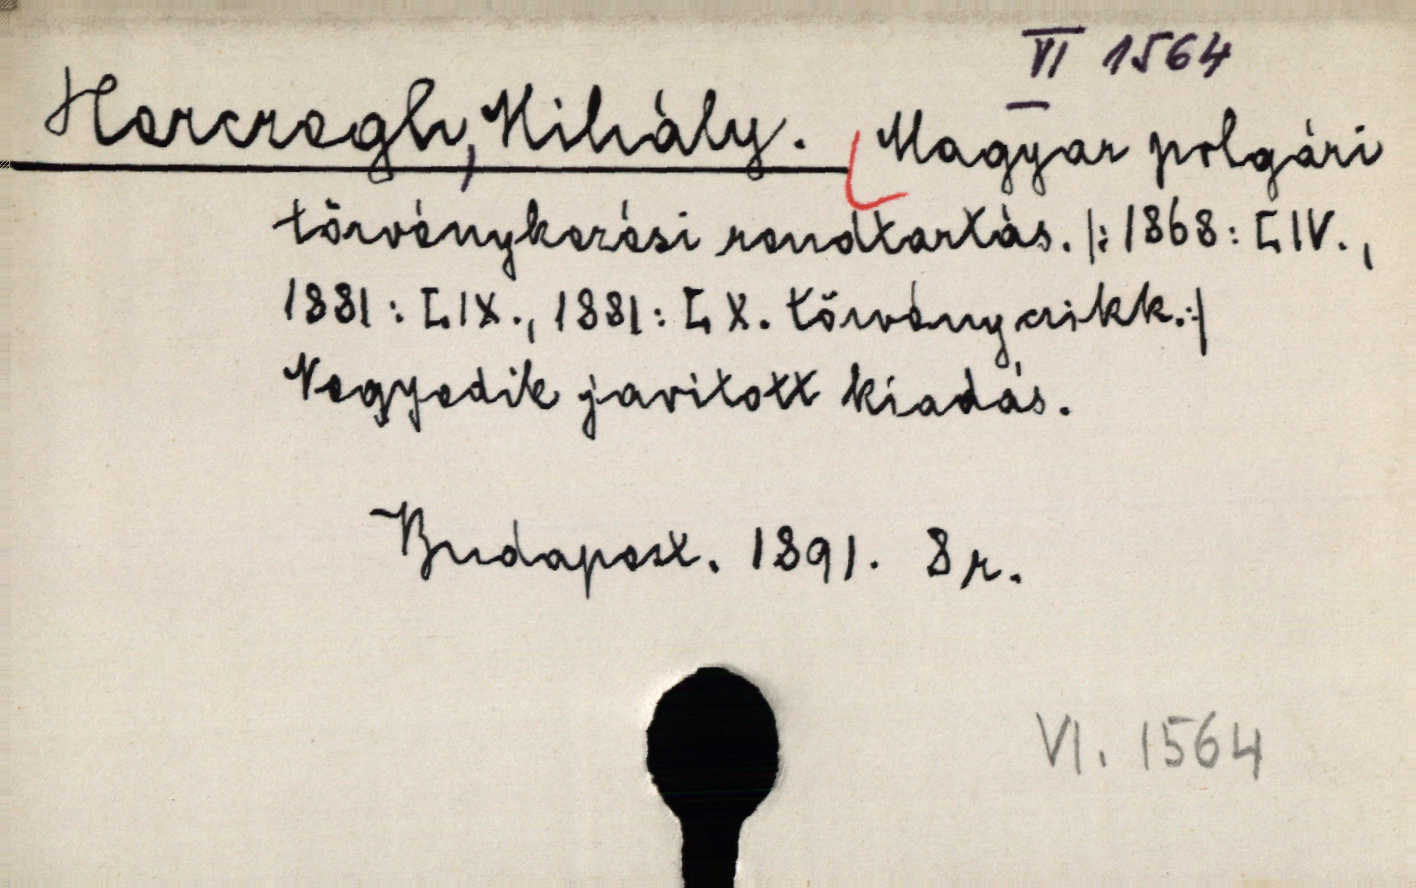 VI 1564
Herczegh, Mihály. Magyar polgári
törvénykezési rendtartás. |: 1868: LIV.,
1881: LIX., 1881: LX. törvényczikk. :|
Negyedik javitott kiadás.
Budapest. 1891. 8r.
VI. 1564